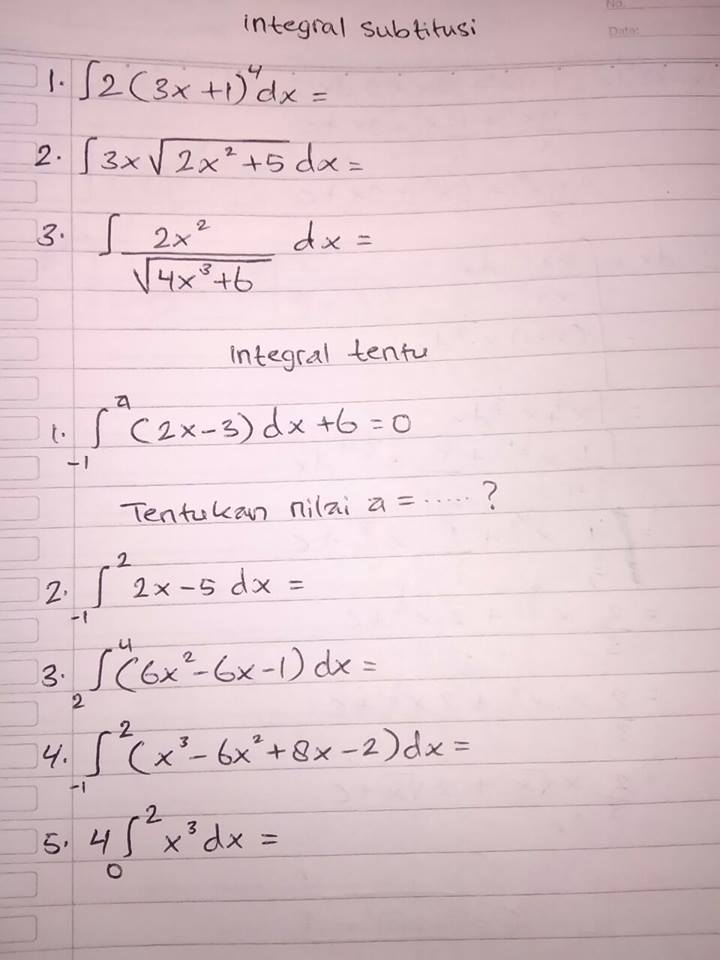 No.
Date:
integral subtitusi
1. ∫2(3x+1)⁴dx =
2. ∫3x√(2x²+5) dx =
3. ∫ 2x²/√(4x³+6) dx =
integral tentu
1. ∫₋₁ᵃ (2x-3) dx +6 = 0
Tentukan nilai a = ..... ?
2. ∫₋₁² 2x-5 dx =
3. ∫₂⁴ (6x²-6x-1) dx =
4. ∫₋₁² (x³-6x²+8x-2) dx =
5. 4∫₀² x³ dx =